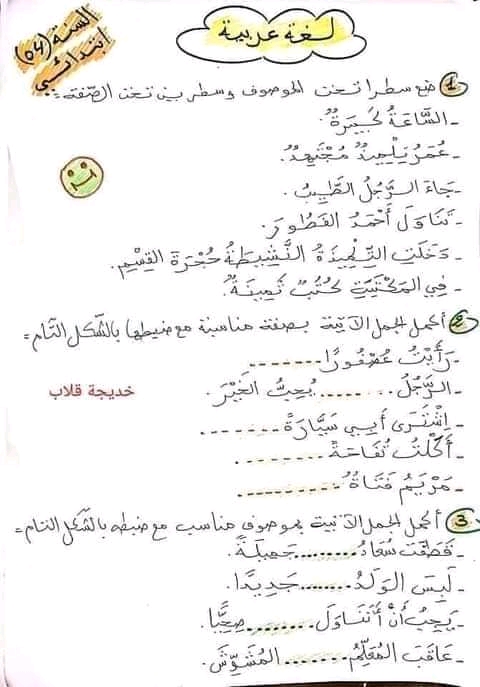 لغة عربية
السنة (04)
ابتدائي
1 ضع سطرا تحت الموصوف وسطرين تحت الصّفة =
- السَّاعَةُ كَبِيرَةٌ.
- عُمَرُ تِلْمِيذٌ مُجْتَهِدٌ.
- جَاءَ الرَّجُلُ الطَّيِّبُ.
- تَنَاوَلَ أَحْمَدُ الفَطُورَ.
- دَخَلَتِ التِّلْمِيذَةُ النَّشِيطَةُ حُجْرَةَ القِسْمِ.
- فِي المَكْتَبَةِ كُتُبٌ ثَمِينَةٌ.
2 أكمل الجمل الآتية بصفة مناسبة مع ضبطها بالشّكل التّام =
- رَأَيْتُ عُصْفُورًا ........
- الرَّجُلُ ........ يُحِبُّ الخَيْرَ.
خديجة قلاب
- اِشْتَرَى أَبِي سَيَّارَةً ........
- أَكَلْتُ تُفَاحَةً ........
- مَرْيَمُ فَتَاةٌ ........
3 أكمل الجمل الآتية بموصوف مناسب مع ضبطه بالشّكل التام =
- قَطَفَتْ سُعَادُ ........ جَمِيلَةً.
- لَبِسَ الوَلَدُ ........ جَدِيدًا.
- يَجِبُ أَنْ أَتَنَاوَلَ ........ صِحِّيًّا.
- عَاقَبَ المُعَلِّمُ ........ المُشَوِّشَ.